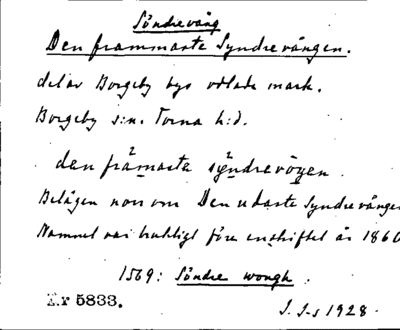 Söndrevång
Den frammarste Syndrevången.
del av Borgeby bys odlade mark.
Borgeby s:n. Torna h:d.
den främasta syndrevögen.
Belägen norr om Den udarste Syndrevången
Namnet var brukligt före enskiftet år 1860
1569: Söndre wongh.
Nr 5833.
J. J-s 1928.